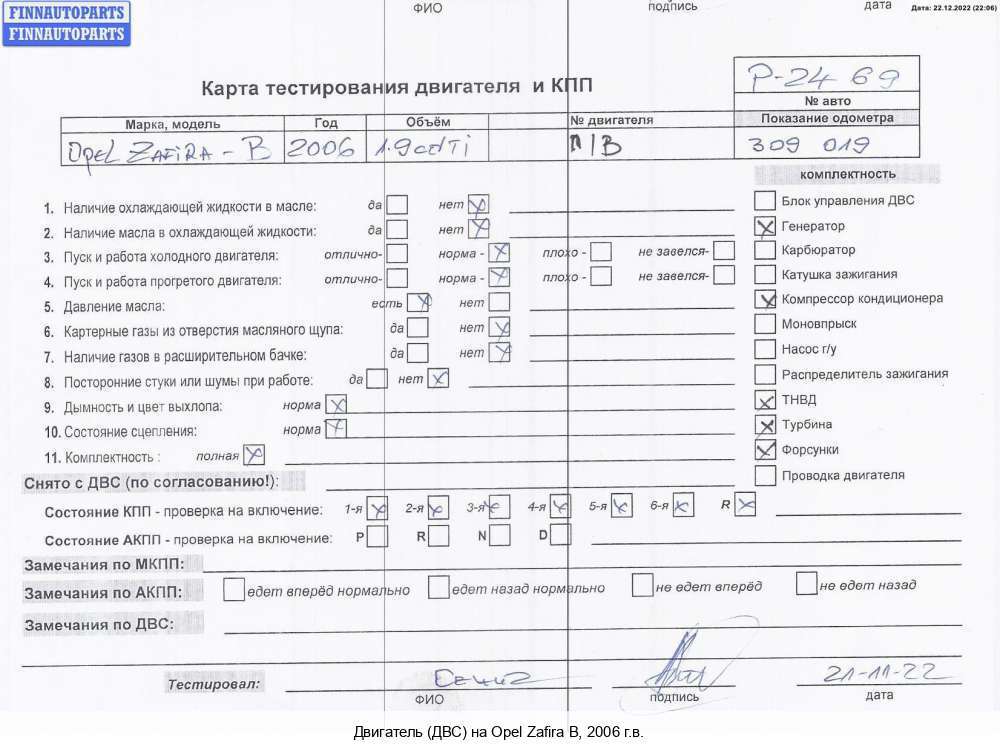 FINNAUTOPARTS
FINNAUTOPARTS
ФИО подпись дата Дата: 22.12.2022 (22:06)
Карта тестирования двигателя и КПП
P-24 69
№ авто
Марка, модель Год Объём № двигателя Показание одометра
Opel Zafira - B 2006 1.9 cdTi П/В 309 019
комплектность
1. Наличие охлаждающей жидкости в масле: да нет
2. Наличие масла в охлаждающей жидкости: да нет
3. Пуск и работа холодного двигателя: отлично- норма - плохо - не завелся-
4. Пуск и работа прогретого двигателя: отлично- норма - плохо - не завелся-
5. Давление масла: есть нет
6. Картерные газы из отверстия масляного щупа: да нет
7. Наличие газов в расширительном бачке: да нет
8. Посторонние стуки или шумы при работе: да нет
9. Дымность и цвет выхлопа: норма
10. Состояние сцепления: норма
11. Комплектность : полная
Блок управления ДВС
Генератор
Карбюратор
Катушка зажигания
Компрессор кондиционера
Моновпрыск
Насос г/у
Распределитель зажигания
ТНВД
Турбина
Форсунки
Проводка двигателя
Снято с ДВС (по согласованию!):
Состояние КПП - проверка на включение: 1-я 2-я 3-я 4-я 5-я 6-я R
Состояние АКПП - проверка на включение: P R N D
Замечания по МКПП:
Замечания по АКПП: едет вперёд нормально едет назад нормально не едет вперёд не едет назад
Замечания по ДВС:
Тестировал: 21-11-22
ФИО подпись дата
Двигатель (ДВС) на Opel Zafira B, 2006 г.в.